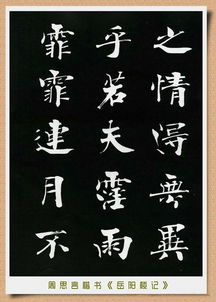 之情得無異
乎若夫霪雨
霏霏連月不
周思言楷书《岳阳楼记》